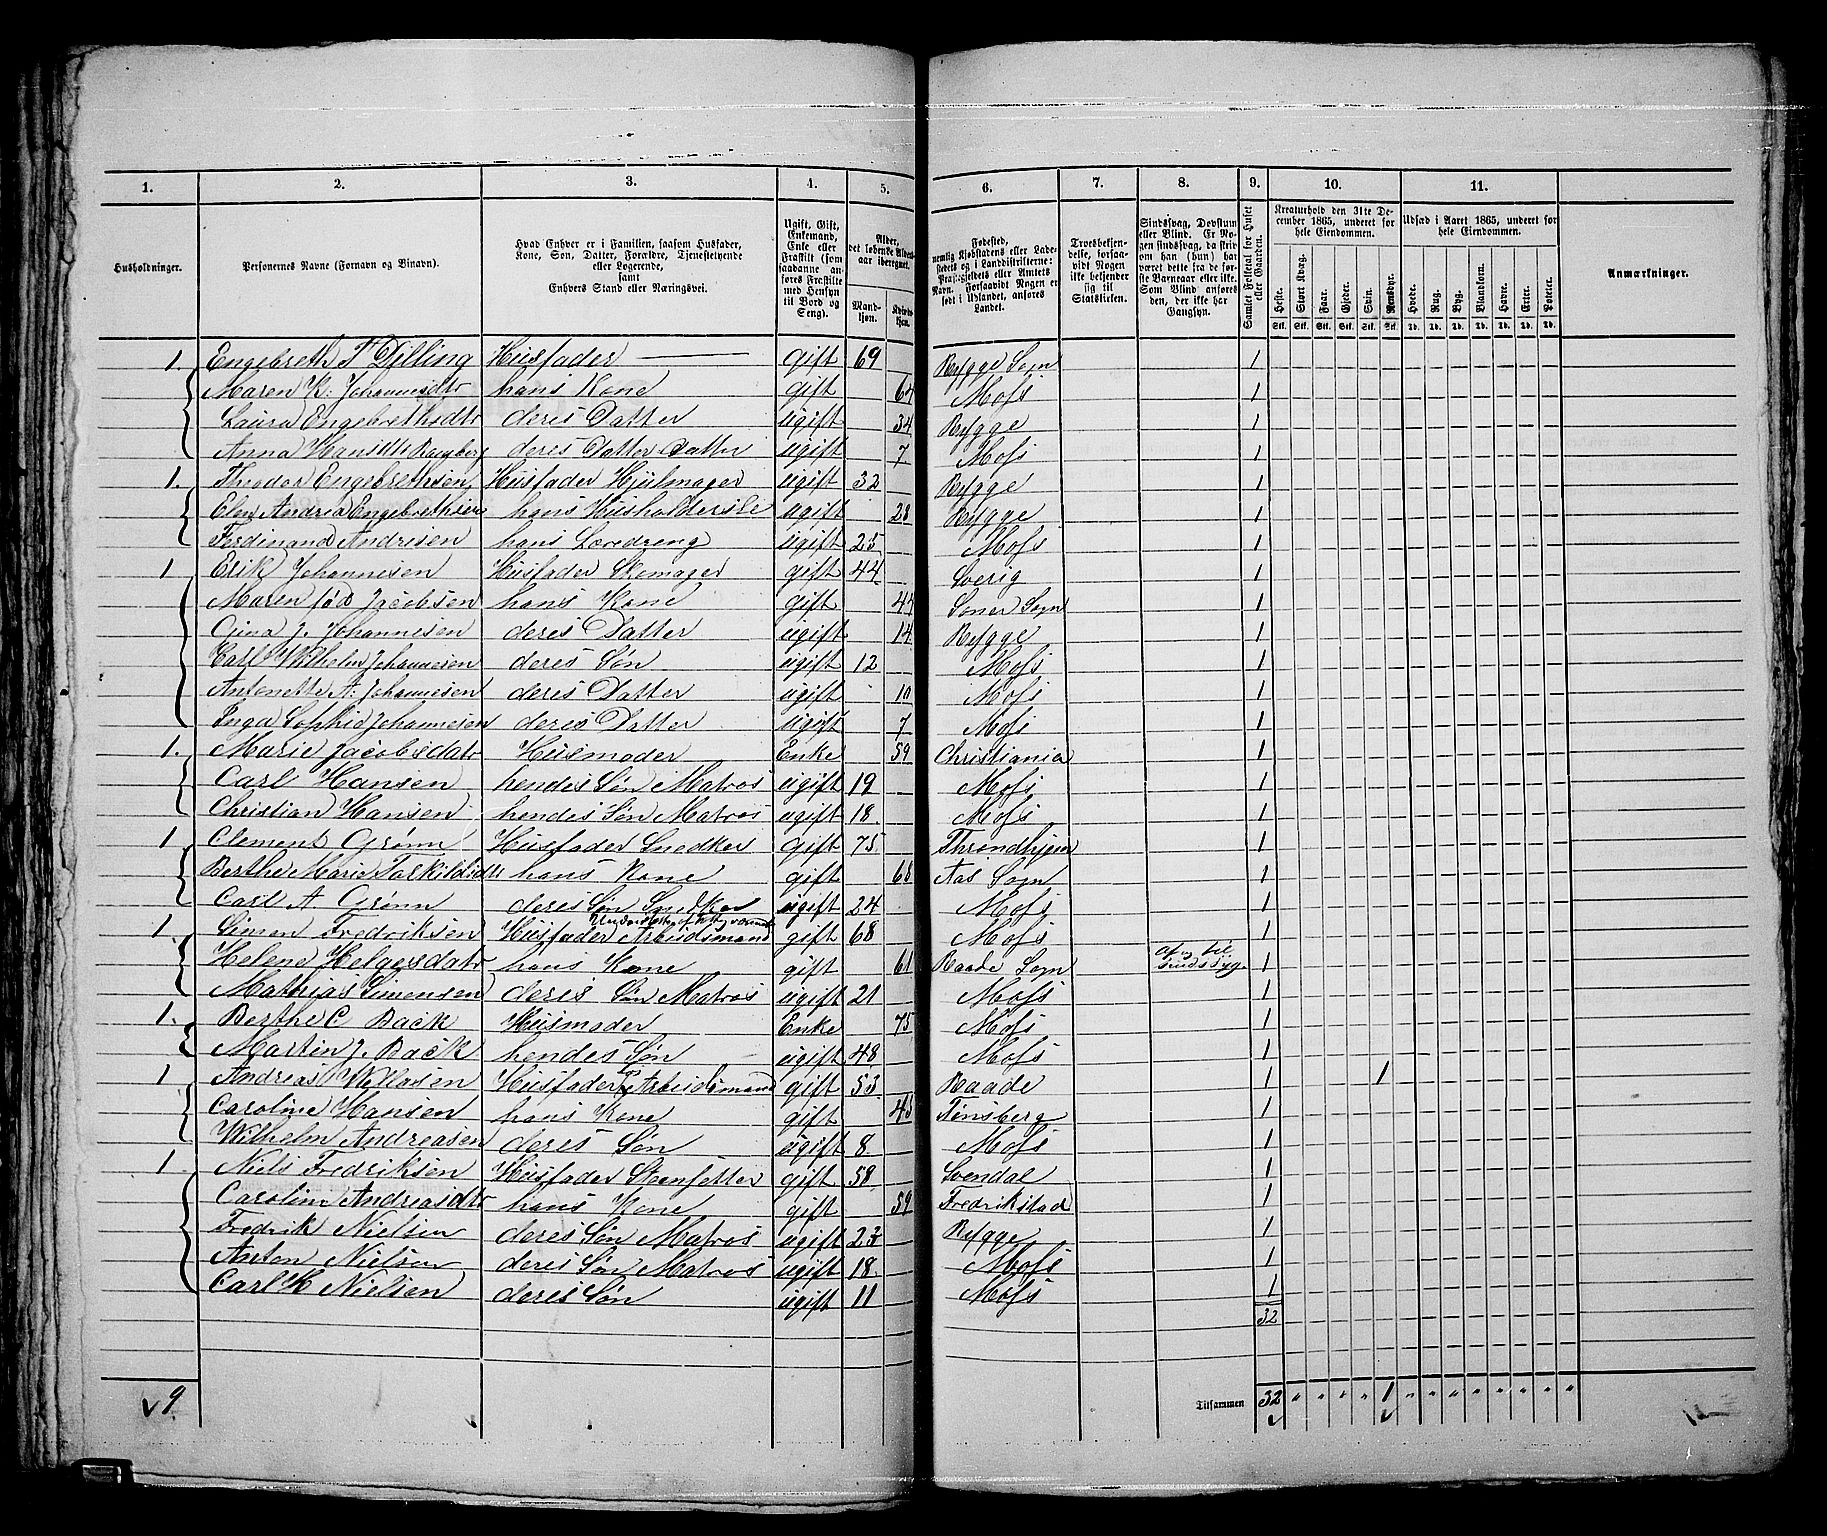 1. 2. 3. 4. 5. 6. 7. 8. 9. 10. 11.
Husholdninger.
Personernes Navne (Fornavn og Binavn).
Hvad Enhver er i Familien, saasom Husfader,
Kone, Søn, Datter, Forældre, Tjenestetyende
eller Logerende,
samt
Enhvers Stand eller Næringsvei.
Ugift, Gift,
Enkemand,
Enke eller
Fraskilt (som
saadanne an-
føres Fraskilte
med Hensyn
til Bord og
Seng).
Alder,
det løbende Alders-
aar iberegnet.
Mand-
kjøn.
Kvinde-
kjøn.
Fødested,
nemlig Kjøbstadens eller Lade-
stedets og i Landdistrikterne:
Præstegjeldets eller Amtets
Navn. Forsaavidt Nogen er
født i Udlandet, anføres
Landet.
Troesbekjen-
delse, forsaa-
vidt Nogen
ikke bekjender
sig til
Statskirken.
Sindssvag, Døvstum
eller Blind. Er No-
gen sindssvag, da skriv
om han (hun) har
været dette fra de før-
ste Barneaar eller ikke.
Som Blind anføres
den, der ikke har
Gangsyn.
Samlet Folketal for Huset
eller Gaarden.
Kreaturhold den 31te De-
cember 1865, underet for
hele Eiendommen.
Heste. Stort Kvæg. Faar. Gjeder. Svin. Rensdyr.
Stk. Stk. Stk. Stk. Stk. Stk.
Udsæd i Aaret 1865, underet for
hele Eiendommen.
Hvede. Rug. Byg. Blandkorn. Havre. Erter. Poteter.
Td. Td. Td. Td. Td. Td. Td.
Anmærkninger.
1. Engebreth T Dilling Husfader gift 69 Rygge Sogn 1
Maren K. Johannesdtr hans Kone gift 64 Moss 1
Laura Engebrethsdtr deres Datter ugift 34 Rygge 1
Anna Hansdtr deres Datter Datter ugift 7 Moss 1
1. Theodor Engebrethsen Husfader Hjulmager ugift 32 Rygge 1
Elen Andrea Engebrethsen hans Husholderske ugift 28 Rygge 1
Ferdinand Andresen hans Læredreng ugift 25 Moss 1
1 Erik Johannesen Husfader Skomager gift 44 Sverig 1
Maren fød Jacobsen hans Kone gift 44 Soner Sogn 1
Gina J. Johannesen deres Datter ugift 14 Rygge 1
Carl Wilhelm Johannesen deres Søn ugift 12 Moss 1
Antonette A. Johannesen deres Datter ugift 10 Moss 1
Inga Sophie Johannesen deres Datter ugift 7 Moss 1
1. Marie Jacobsdatr Husmoder Enke 59 Christiania 1
Carl Hansen hendes Søn Matros ugift 19 Moss 1
Christian Hansen hendes Søn Matros ugift 18 Moss 1
1 Clement Grønn Husfader Snedker gift 75 Throndhjem 1
Berthe Marie Torkildsdtr hans Kone gift 68 Aas Sogn 1
Carl A Grønn deres Søn Snedker ugift 24 Moss 1
Understøttes af Fattigvæsnet
1. Simon Fredriksen Husfader Arbeidsmand gift 68 Moss 1
Helene Helgesdatr hans Kone gift 61 Raade Sogn sindssyg. 1
Mathias Simensen deres Søn Matros ugift 21 Moss 1
1. Berthe C Back Husmoder Enke 75 Moss 1
Martin J. Back hendes Søn ugift 48 Moss 1
1 Andreas Willasen Husfader Arbeidsmand gift 53 Raade 1 1
Caroline Hansen hans Kone gift 45 Tønsberg 1
Wilhelm Andreasen deres Søn ugift 8 Moss 1
1 Niels Fredriksen Husfader Steensetter gift 58 Svendal 1
Carolin Andreasdtr hans Kone gift 59 Fredrikstad 1
Fredrik Nielsen deres Søn Matros ugift 23 Rygge 1
Anton Nielsen deres Søn Matros ugift 18 Moss 1
Carl H Nielsen deres Søn ugift 11 Moss 1
32
9 Tilsammen 32 " " " " 1 " " " " " " " "